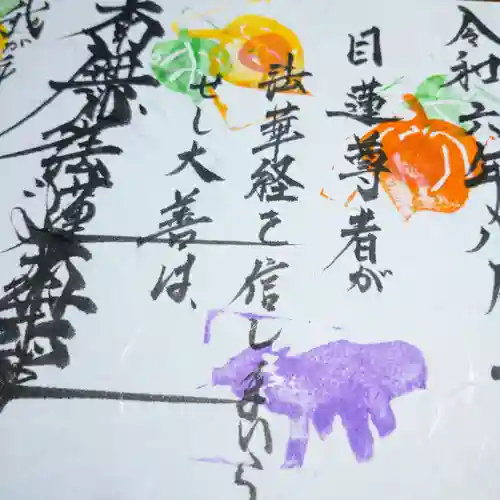 令和六年八月一
目蓮尊者が
法華経を信じまいら
せし大善は、
南無妙法蓮華経
我が